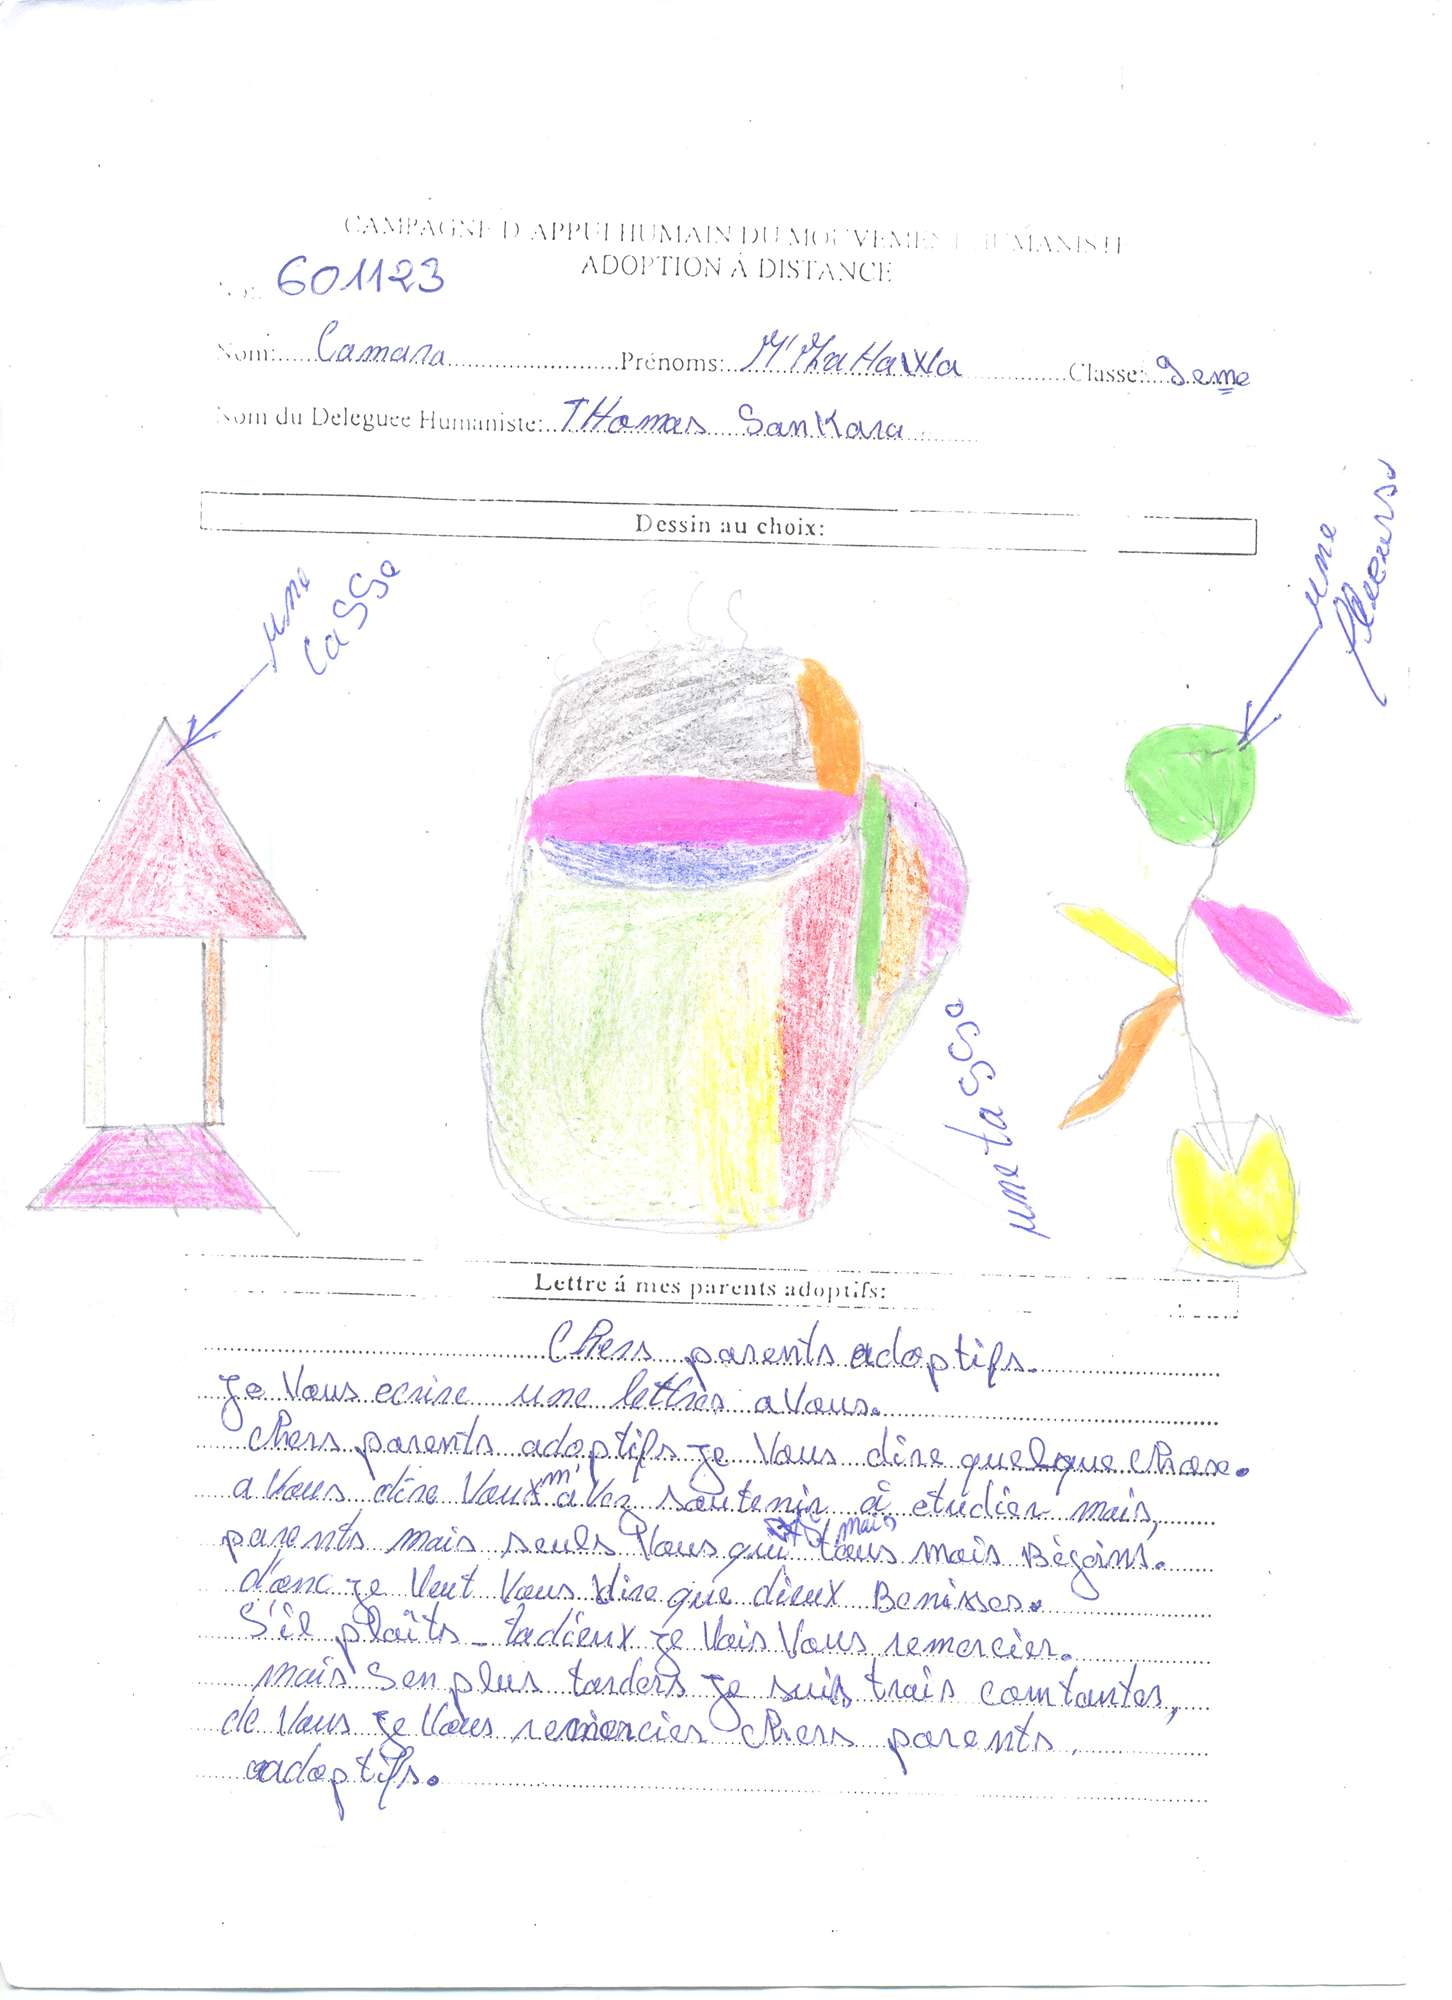 CAMPAGNE D'APPUI HUMAIN DU MOUVEMENT HUMANISTE
ADOPTION Á DISTANCE
No: 601123
Nom: Camara Prénoms: M'MaHaWa Classe: 9eme
Nom du Deleguee Humaniste: THomas SanKara
Dessin au choix:
une
casse
une
fleurs
une tasse
Lettre á mes parents adoptifs:
Chers parents adoptifs.
Je Vous ecrire une lettres a Vous.
Chers parents adoptifs je Vous dire quelque chose.
a Vous dire Vous m'avez soutenir à etudier mais,
parents mais seuls Vous qui mais tous mais Bégoins.
donc je Veut Vous dire que dieux Benisses.
S'il plaîts - tadieux je Vais Vous remercier.
mais Sen plus tarders je suis trais contantes,
de Vous je Vous remercies chers parents.
adoptifs.